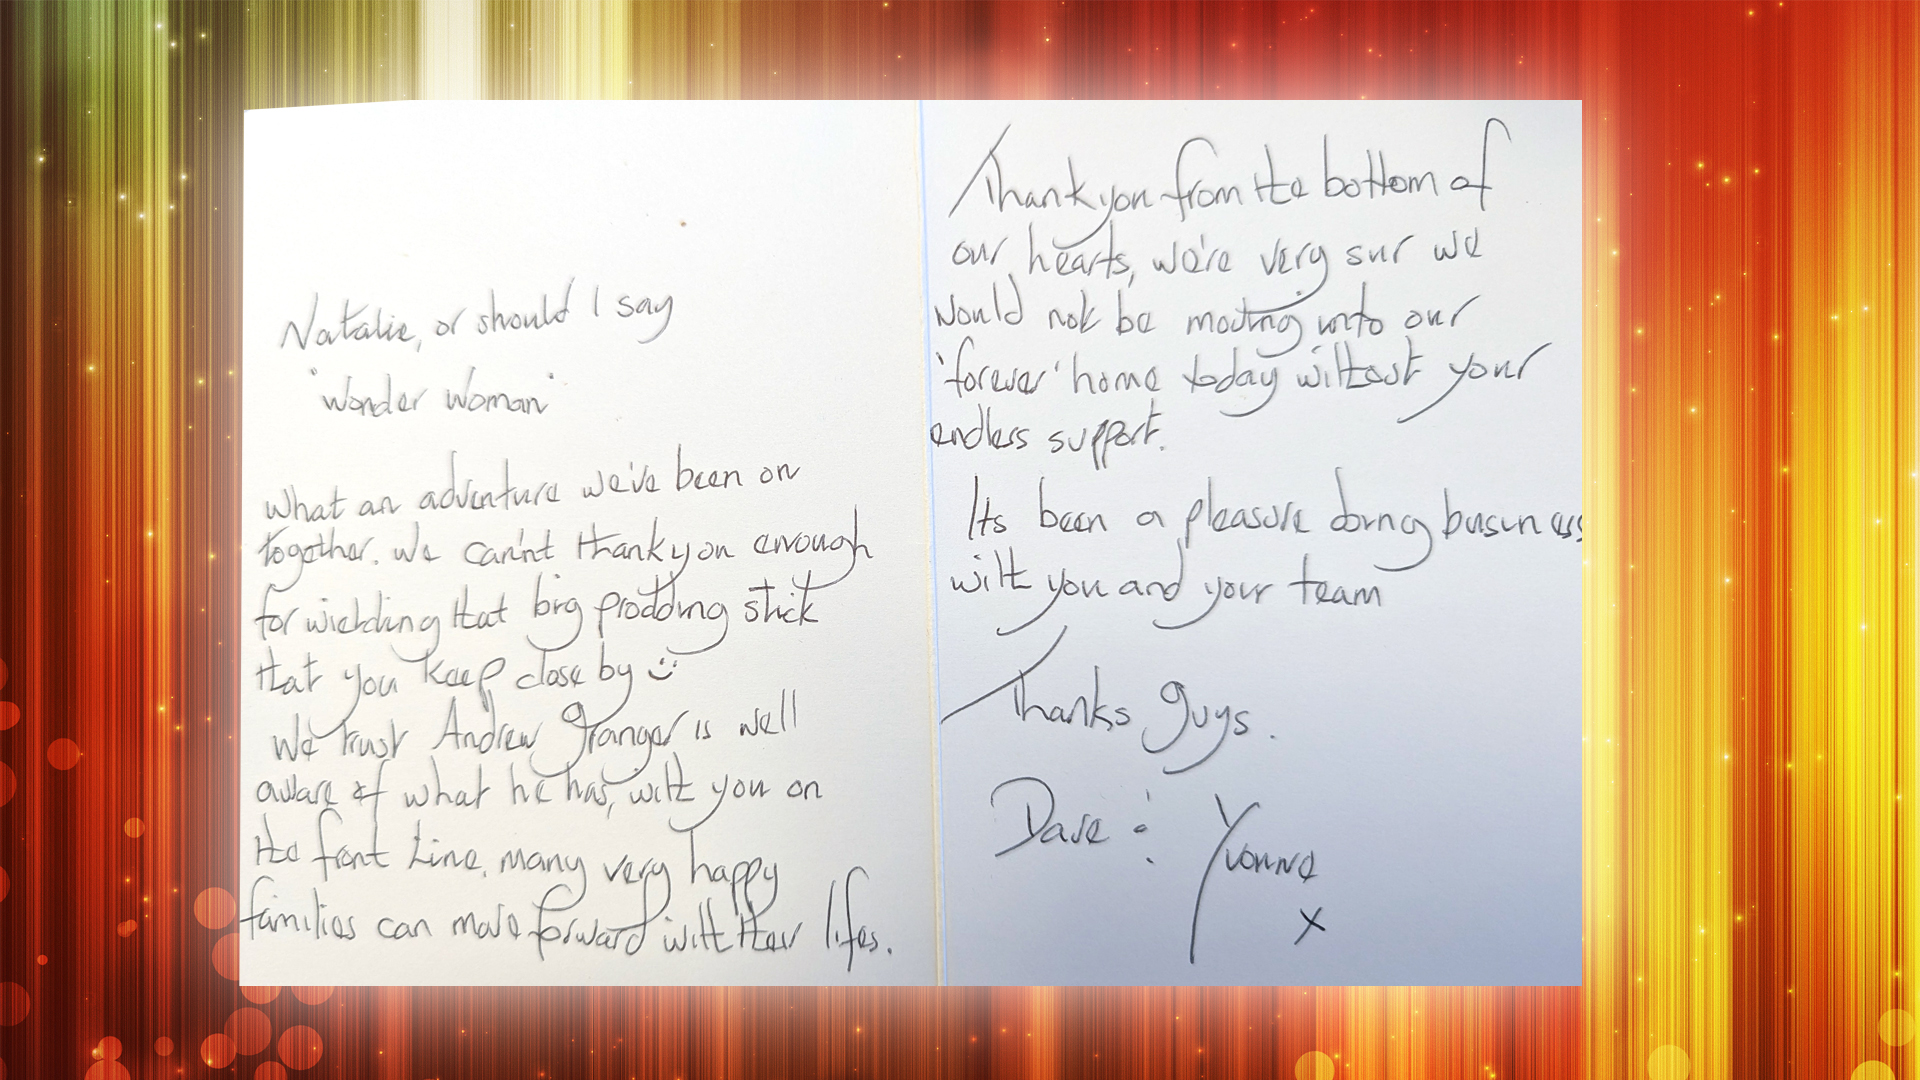 Natalie, or should I say
"Wonder Woman"
What an adventure we've been on
together. We can'nt thank you enough
for wielding that big prodding stick
that you keep close by
We trust Andrew Granger is well
aware of what he has, with you on
the front line, many very happy
families can move forward with their lifes.
Thank you from the bottom of
our hearts, we're very sur we
would not be moving into our
'forever' home today without your
endless support.
Its been a pleasure doing business
with you and your team
Thanks guys.
Dave & Yvonne
x